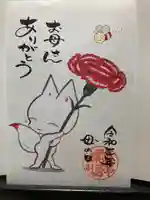 お母さん
ありがとう
令和五年
母の日